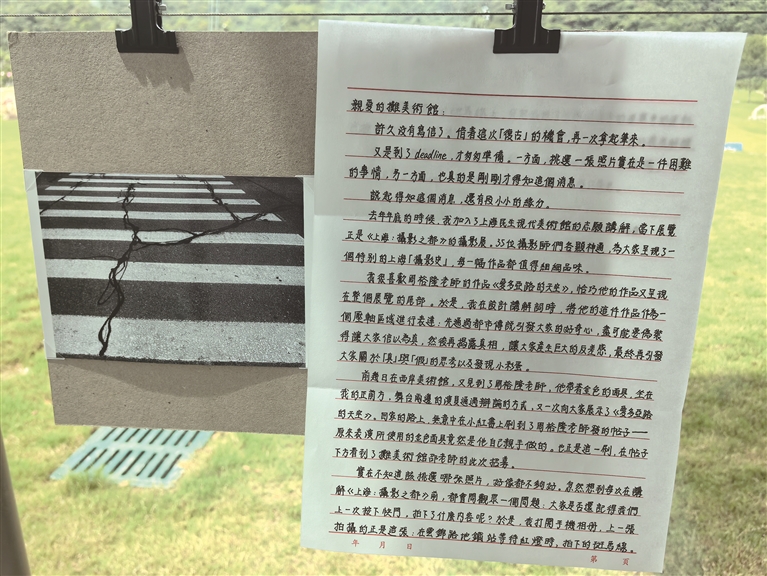 親愛的攤美術館：
許久没有寫信了。借着這次「復古」的機會，再一次拿起筆來。
又是到了deadline，才匆匆準備。一方面，挑選一張照片實在是一件困難
的事情，另一方面，也真的是剛剛才得知這個消息。
說起得知這個消息，還有段小小的緣分。
去年年底的時候，我加入了上海民生現代美術館的志願講解，當下展覽
正是《上海：攝影之都》的攝影展。55位攝影師們各顯神通，為大家呈現了一
個特别的上海「攝影史」，每一幅作品都值得細細品味。
我很喜歡周裕隆老師的作品《愛多亞路的天坐》，恰巧他的作品又呈現
在整個展覽的尾部。於是，我在設計講解詞時，將他的這件作品作為一
個壓軸區域進行表達：先通過都市傳說引發大家的好奇心，盡可能要偽裝
得讓大家信以為真，然後再揭露真相，讓大家產生巨大的反差感，最終再引發
大家關於「真」與「假」的思考以及發現小彩蛋。
前幾日在西岸美術館，又見到了周裕隆老師，他帶着金色的面具，坐在
我的正前方，舞台兩邊的演員通過辯論的方式，又一次向大家展示了《愛多亞路
的天坐》。回家的路上，無意中在小紅書上刷到了周裕隆老師發的帖子——
原來表演所使用的金色面具竟然是他自己親手做的。也正是這一刷，在帖子
下方看到了攤美術館 老師的此次招募。
實在不知道該挑選哪張照片，好像都不夠好。忽然想到每次在講
解《上海：攝影之都》前，都會問觀眾一個問題：大家是否還記得我們
上一次按下快門，拍下了什麼内容呢？於是，我打開手機相册，上一張
拍攝的正是這張：在 路地鐵站等待紅燈時，拍下的斑馬線。
年 月 日 第 頁